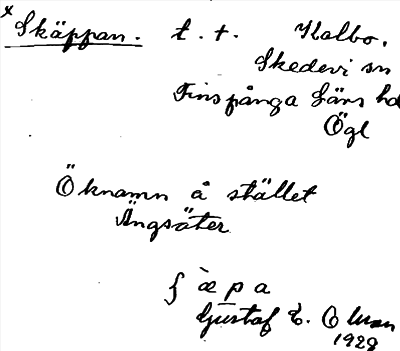 x Skäppan. t. t. Kalbo.
Skedevi sn
Finspånga läns hd
Ögl
Öknamn å stället
Ängsäter
ʃæ̀pa
Gustaf E. Olman
1929